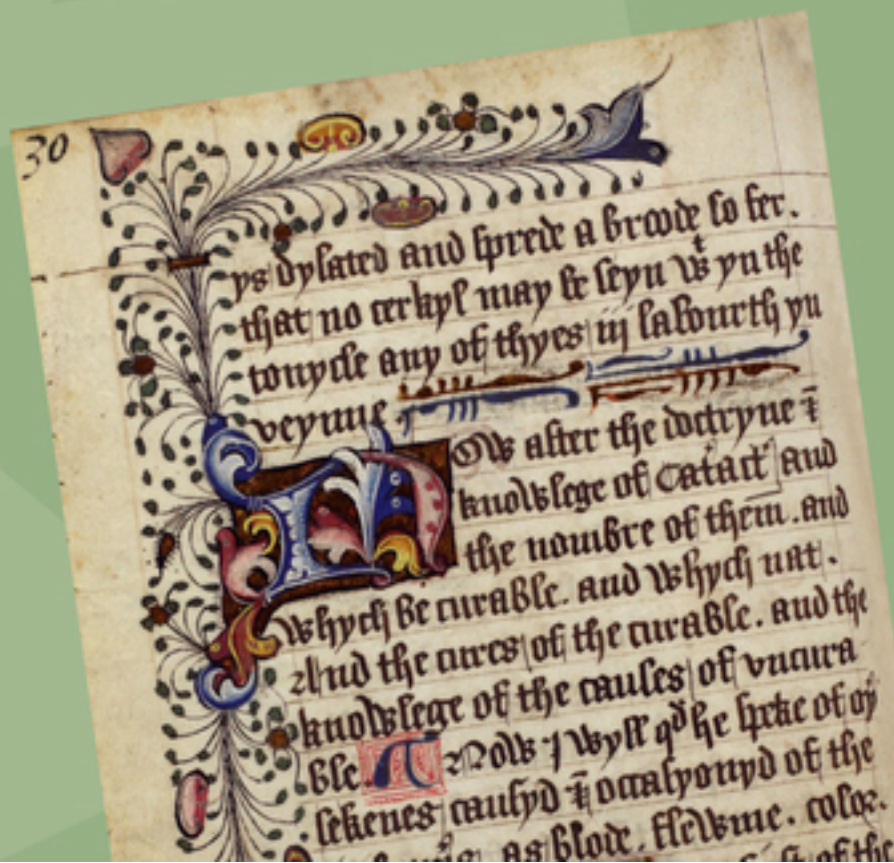 30
ys dylated and sprede a broode so fer.
that no cerkyl may be seyn wt yn the
tonycle any of thyes iij labourth yn
veynne
Now after the doctryne &
knowlege of Catact and
the nombre of them. and
whych be curable. and whych nat.
And the cures of the curable. and the
knowlege of the causes of vncura
ble. Now I wyll qd he speke of oyr
sekenes causyd & occasyonyd of the
as blode. flewme. color.
of the